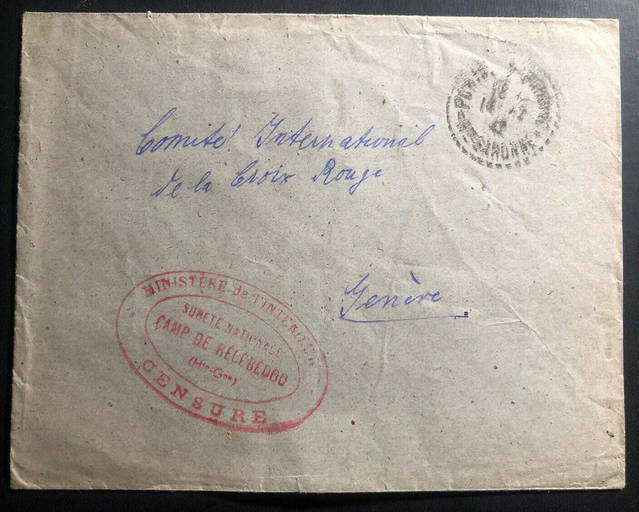 Comité International
de la Croix Rouge
Genève
MINISTÈRE DE L'INTÉRIEUR
SURETÉ NATIONALE
CAMP DE RÉCÉBÉDOU
(Hte-Gne)
CENSURE
GARONNE